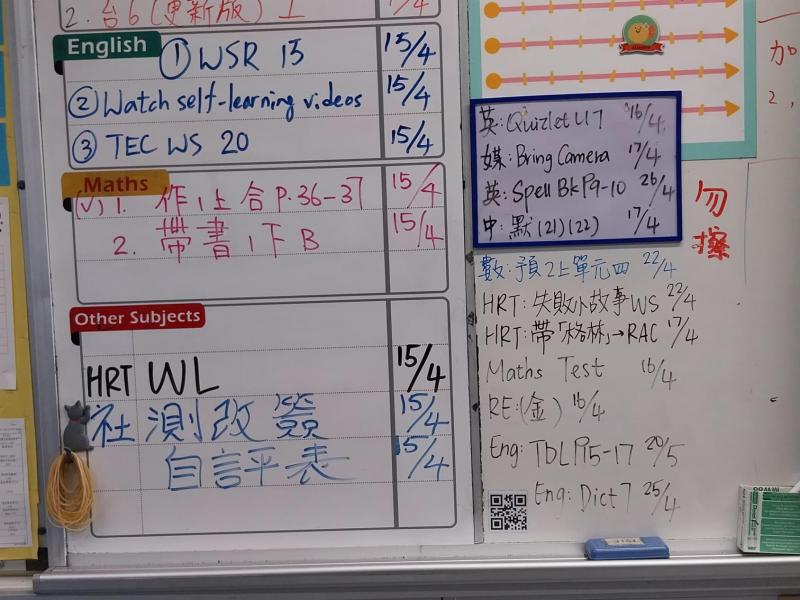 2. 台6(更新版)上 1/4
English
① WSR 13 15/4
② Watch self-learning videos 15/4
③ TEC WS 20 15/4
Maths
(✓) 1. 作1上合 P.36-37 15/4
2. 帶書1下B 15/4
Other Subjects
HRT WL 15/4
社測改簽 15/4
自評表 15/4
英: Quizlet U17 16/4
媒: Bring Camera 17/4
英: Spell Bk P9-10 26/4
中: 默(21)(22) 17/4
勿擦
數: 預2上單元四 22/4
HRT: 失敗小故事WS 22/4
HRT: 帶「格林」→RAC 17/4
Maths Test 16/4
RE: (金) 16/4
Eng: TbLP15-17 20/5
Eng: Dict 7 25/4
加
2,